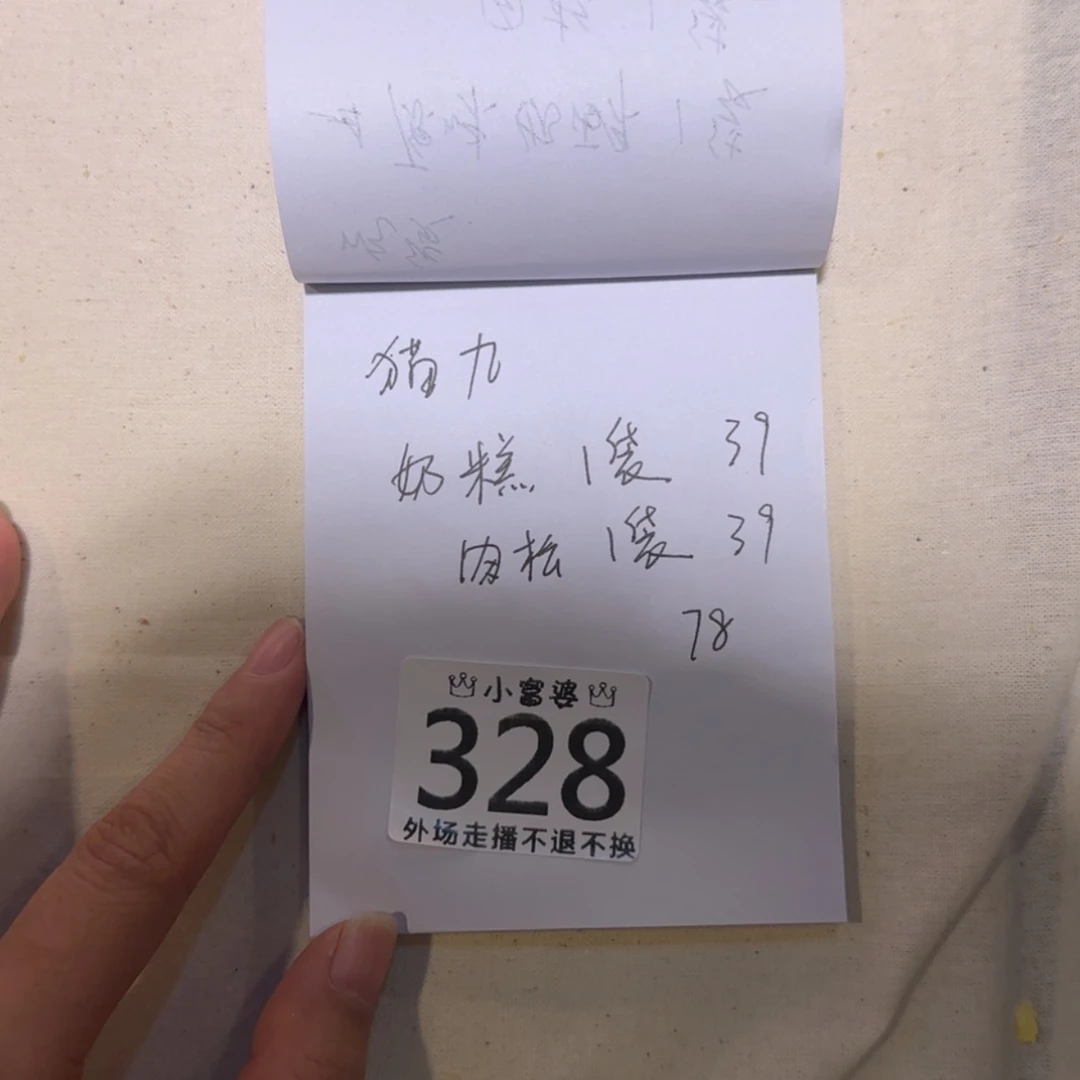 猫九
奶糕 1袋 39
肉松 1袋 39
78
小富婆
328
外场走播不退不换